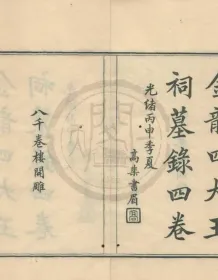 金龍四大王
祠墓錄四卷
光緒丙申季夏
高業書眉
八千卷樓開雕